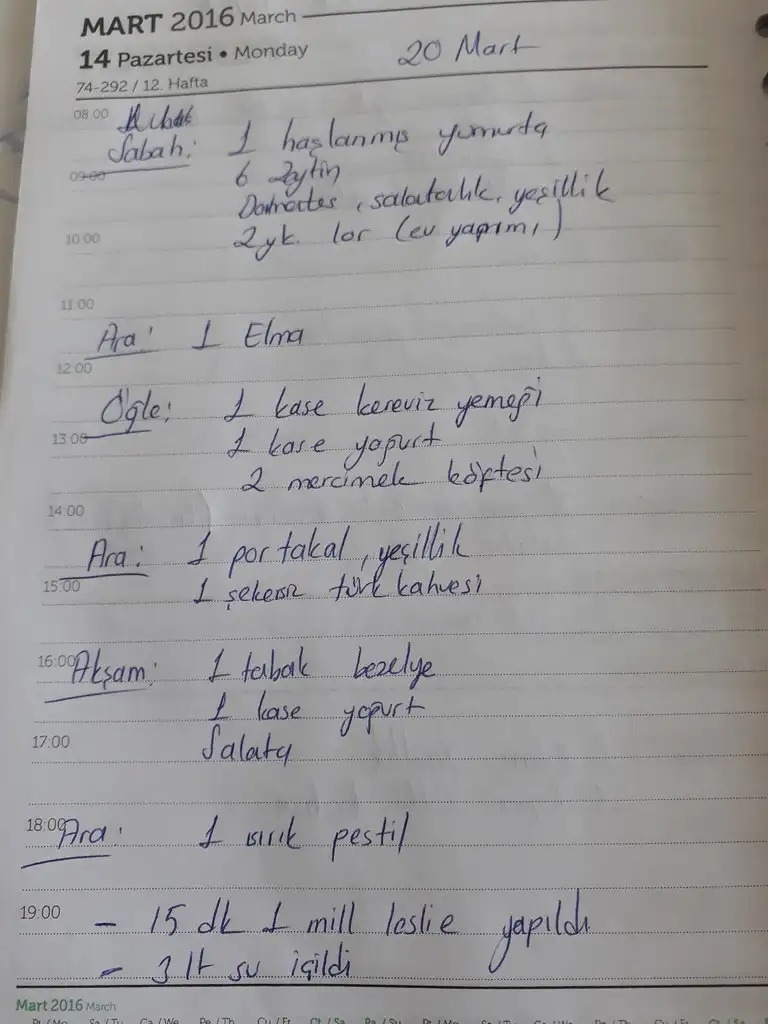 MART 2016 March
14 Pazartesi • Monday
20 Mart
74-292 / 12. Hafta
08:00
Sabah: 1 haşlanmış yumurta
09:00
6 zeytin
Domates, salatalık, yeşillik
10:00
2 yk. lor (ev yapımı)
11:00
Ara: 1 Elma
12:00
Öğle: 1 kase kereviz yemeği
13:00
1 kase yoğurt
2 mercimek köftesi
14:00
Ara: 1 portakal, yeşillik
15:00
1 şekersiz türk kahvesi
16:00 Akşam: 1 tabak bezelye
1 kase yoğurt
17:00
Salata
18:00 Ara: 1 ısırık pestil
19:00
- 15 dk 1 mill leslie yapıldı
- 3 lt su içildi
Mart 2016 March